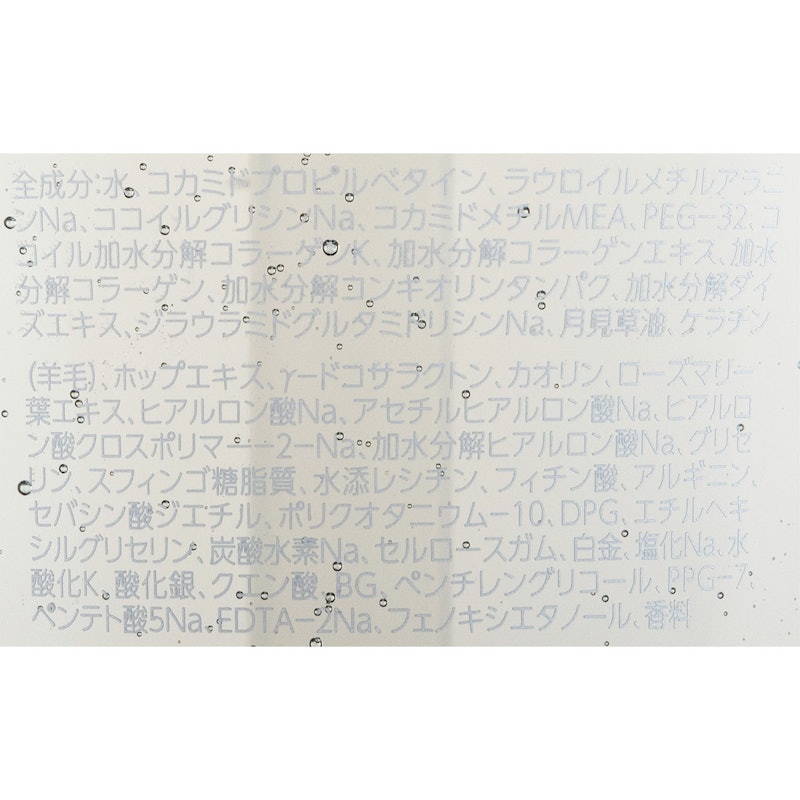 全成分:水、コカミドプロピルベタイン、ラウロイルメチルアラニ
ンNa、ココイルグリシンNa、コカミドメチルMEA、PEG-32、コ
コイル加水分解コラーゲンK、加水分解コラーゲンエキス、加水
分解コラーゲン、加水分解コンキオリンタンパク、加水分解ダイ
ズエキス、ジラウラミドグルタミドリシンNa、月見草油、ケラチン
(羊毛)、ホップエキス、γ-ドコサラクトン、カオリン、ローズマリー
葉エキス、ヒアルロン酸Na、アセチルヒアルロン酸Na、ヒアルロ
ン酸クロスポリマー-2-Na、加水分解ヒアルロン酸Na、グリセ
リン、スフィンゴ糖脂質、水添レシチン、フィチン酸、アルギニン、
セバシン酸ジエチル、ポリクオタニウム-10、DPG、エチルヘキ
シルグリセリン、炭酸水素Na、セルロースガム、白金、塩化Na、水
酸化K、酸化銀、クエン酸、BG、ペンチレングリコール、PPG-7、
ペンテト酸5Na、EDTA-2Na、フェノキシエタノール、香料